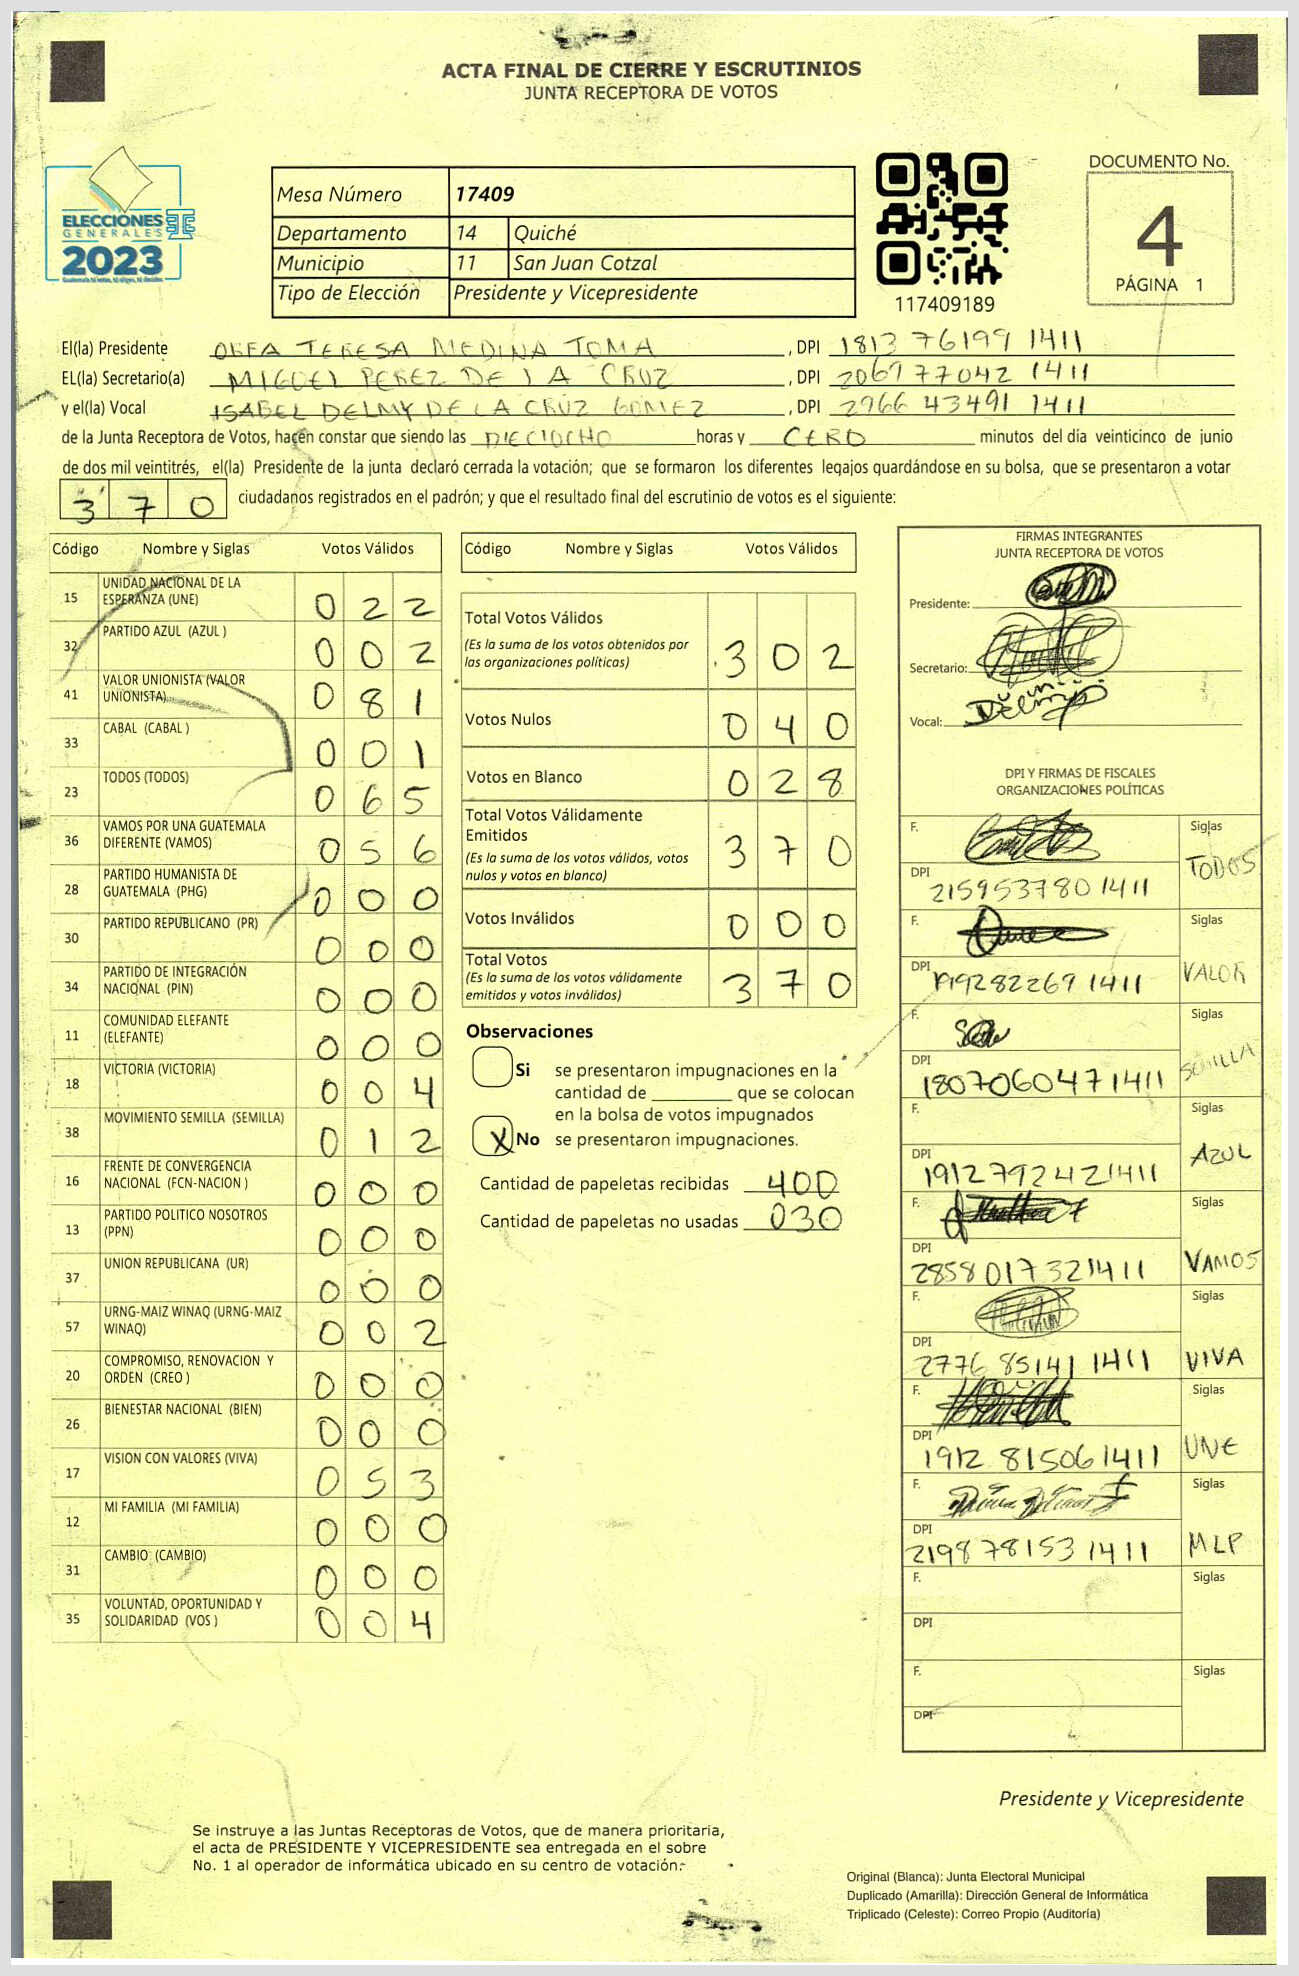 ACTA FINAL DE CIERRE Y ESCRUTINIOS
JUNTA RECEPTORA DE VOTOS
ELECCIONES
GENERALES
2023
Mesa Número 17409
Departamento 14 Quiché
Municipio 11 San Juan Cotzal
Tipo de Elección Presidente y Vicepresidente
117409189
DOCUMENTO No.
4
PÁGINA 1
El(la) Presidente ORFA TERESA MEDINA TOMA , DPI 1813 76199 1411
EL(la) Secretario(a) MIGUEL PEREZ DE LA CRUZ , DPI 2069 77042 1411
y el(la) Vocal ISABEL DELMY DE LA CRUZ GOMEZ , DPI 2966 43491 1411
de la Junta Receptora de Votos, hacen constar que siendo las DIECIOCHO horas y CERO minutos del día veinticinco de junio
de dos mil veintitrés, el(la) Presidente de la junta declaró cerrada la votación; que se formaron los diferentes legajos guardándose en su bolsa, que se presentaron a votar
370 ciudadanos registrados en el padrón; y que el resultado final del escrutinio de votos es el siguiente:
Código Nombre y Siglas Votos Válidos
15 UNIDAD NACIONAL DE LA ESPERANZA (UNE) 022
32 PARTIDO AZUL (AZUL ) 002
41 VALOR UNIONISTA (VALOR UNIONISTA) 081
33 CABAL (CABAL ) 001
23 TODOS (TODOS) 065
36 VAMOS POR UNA GUATEMALA DIFERENTE (VAMOS) 056
28 PARTIDO HUMANISTA DE GUATEMALA (PHG) 000
30 PARTIDO REPUBLICANO (PR) 000
34 PARTIDO DE INTEGRACIÓN NACIONAL (PIN) 000
11 COMUNIDAD ELEFANTE (ELEFANTE) 000
18 VICTORIA (VICTORIA) 004
38 MOVIMIENTO SEMILLA (SEMILLA) 012
16 FRENTE DE CONVERGENCIA NACIONAL (FCN-NACION ) 000
13 PARTIDO POLITICO NOSOTROS (PPN) 000
37 UNION REPUBLICANA (UR) 000
57 URNG-MAIZ WINAQ (URNG-MAIZ WINAQ) 002
20 COMPROMISO, RENOVACION Y ORDEN (CREO ) 000
26 BIENESTAR NACIONAL (BIEN) 000
17 VISION CON VALORES (VIVA) 053
12 MI FAMILIA (MI FAMILIA) 000
31 CAMBIO (CAMBIO) 000
35 VOLUNTAD, OPORTUNIDAD Y SOLIDARIDAD (VOS ) 004
Código Nombre y Siglas Votos Válidos
Total Votos Válidos 302
(Es la suma de los votos obtenidos por
las organizaciones políticas)
Votos Nulos 040
Votos en Blanco 028
Total Votos Válidamente
Emitidos 370
(Es la suma de los votos válidos, votos
nulos y votos en blanco)
Votos Inválidos 000
Total Votos 370
(Es la suma de los votos válidamente
emitidos y votos inválidos)
Observaciones
Si se presentaron impugnaciones en la
cantidad de ________ que se colocan
en la bolsa de votos impugnados
X No se presentaron impugnaciones.
Cantidad de papeletas recibidas 400
Cantidad de papeletas no usadas 030
FIRMAS INTEGRANTES
JUNTA RECEPTORA DE VOTOS
Presidente:
Secretario:
Vocal: Delmy
DPI Y FIRMAS DE FISCALES
ORGANIZACIONES POLÍTICAS
F. Siglas
DPI 2159537801411 TODOS
F. Siglas
DPI 1992822691411 VALOR
F. Siglas
DPI 1807060471411 SEMILLA
F. Siglas
DPI 1912792421411 AZUL
F. Siglas
DPI 2858017321411 VAMOS
F. Siglas
DPI 2776 85141 1411 VIVA
F. Siglas
DPI 1912 81506 1411 UNE
F. Siglas
DPI 2198 78153 1411 MLP
F. Siglas
DPI
F. Siglas
DPI
Presidente y Vicepresidente
Se instruye a las Juntas Receptoras de Votos, que de manera prioritaria,
el acta de PRESIDENTE Y VICEPRESIDENTE sea entregada en el sobre
No. 1 al operador de informática ubicado en su centro de votación.
Original (Blanca): Junta Electoral Municipal
Duplicado (Amarilla): Dirección General de Informática
Triplicado (Celeste): Correo Propio (Auditoría)